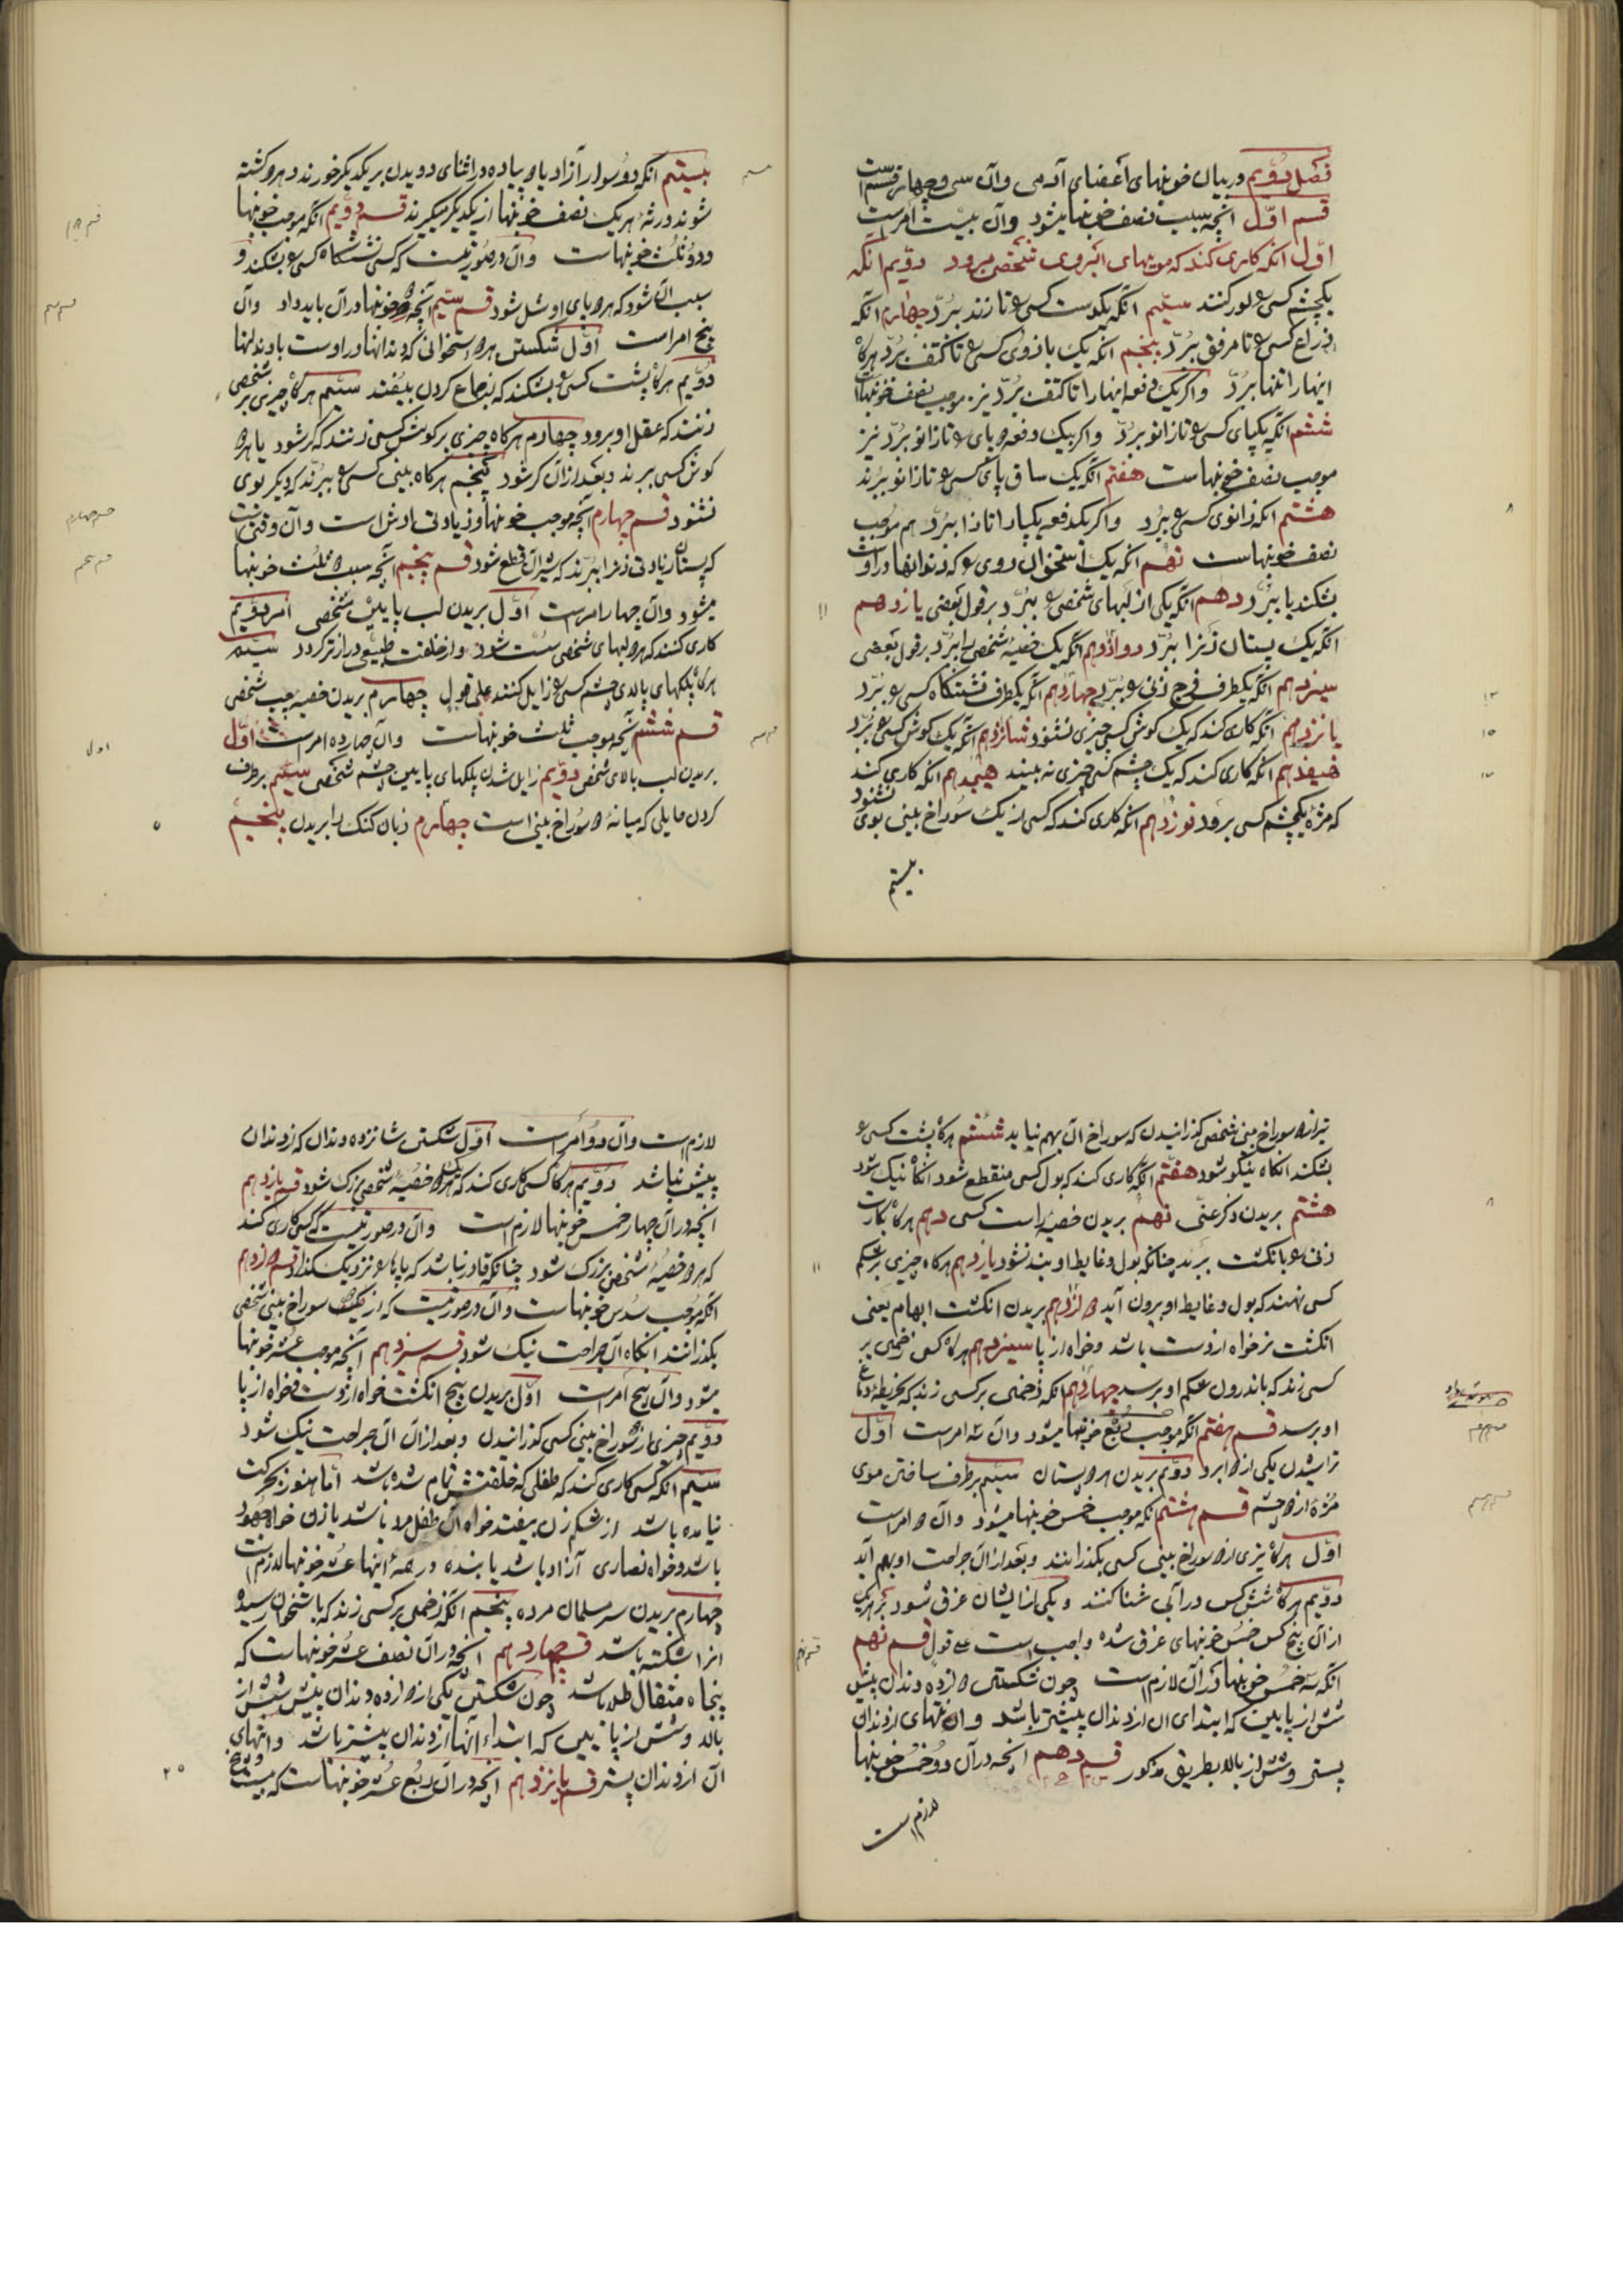 فصل دویم در بیان خونبهای اعضای آدمی و آن سی و چهار قسم است
قسم اول انچه بسبب نصف خونبها میشود و آن بیست امر است
اول انکه کاری کند که مویهای ابروی شخصی برود دویم انکه
یکچشم کسی را کور کنند سیم انکه یکدست کسی را تا زند ببرد چهارم انکه
ذراع کسی را تا مرفق ببرد پنجم انکه یک بازوی کسی را تا کتف ببرد هرکاه
اینها را تنها ببرد واکر یک دفعه اینها را تا کتف ببرد نیز موجب نصف خونبهاست
ششم انکه یکپای کسی را تا زانو ببرد واکر بیک دفعه پای را تا زانو ببرد نیز
موجب نصف خونبهاست هفتم انکه یک ساق پای کسی را تا زانو ببرند
هشتم انکه زانوی کسی را ببرد واکر یکدفعه یکپا را تا ببرد هم موجب
نصف خونبهاست نهم انکه یک استخوان روی را که دندانها در اوست
بشکند یا ببرد دهم انکه یکی از لبهای شخصی را ببرد بر قول بعضی یازدهم
انکه یک پستان زنرا ببرد دوازدهم انکه یک خصیه شخصی را ببرد بر قول بعضی
سیزدهم انکه یکطرف فرج زنی را ببرد چهاردهم انکه یکطرف نشتنکاه کسی را ببرد
پانزدهم انکه کاری کند که یک کوش کسی چیزی نشنود شانزدهم انکه یک کوش کسی را ببرد
هفدهم انکه کاری کند که یک چشم کسی چیزی نه بیند هیجدهم انکه کاری کند
که مژه یکچشم کسی برود نوزدهم انکه کاری کند که کسی از یک سوراخ بینی بوی نشنود
بیستم
بیستم انکه دو سوار آزاد یا دو پیاده در اثنای دویدن بر یکدیکر خورند و هر دو کشته
شوند ورثه هر یک نصف خونبها از یکدیکر میکیرند قسم دویم انکه موجب خونبها
و دو ثلث خونبهاست و آن در صورتیست که کسی نشتنکاه کسی را بشکند و
سبب آن شود که هر دو پای او شل شود قسم سیم انچه خونبها در آن باید داد و آن
پنج امر است اول شکستن هر دو استخوانی که دندانها در اوست با دندانها
دویم هرکاه پشت کسی را بشکند که از جماع کردن بیفتد سیم هرکاه چیزی بر شخصی
زنند که عقل او برود چهارم هرکاه چیزی بر کوش کسی زنند که کر شود یا هر دو
کوش کسی ببرند و بعد از آن کر شود پنجم هرکاه بینی کسی را ببرند که دیکر بوی
نشنود قسم چهارم انچه موجب خونبها و زیادتی ارش است و آن وقتی است
که پستان زنرا ببرند که شیر آن قطع شود قسم پنجم انچه سبب دو ثلث خونبها
میشود و آن چهار امر است اول بریدن لب پایین شخصی امر دویم
کاری کنند که هر دو لبهای شخصی سست شود و از خلقت طبیعی دراز تر کردد سیم
هرکاه پلکهای بالای چشم کسی را زایل کنند علی قول چهارم بریدن خصیه چپ شخصی
قسم ششم انچه موجب ثلث خونبهاست و آن چهارده امر است اول
بریدن لب بالای شخصی دویم زایل شدن پلکهای پایین چشم شخصی سیم برطرف
کردن حایلی که میانه دو سوراخ بینی است چهارم زبان کنک را بریدن پنجم
تیر از دو سوراخ بینی شخصی کذرانیدن که سوراخ آن بهم نیاید ششم هرکاه پشت کسی را
بشکند انکاه نیکو شود هفتم انکه کاری کند که بول کسی منقطع شود انکاه نیک شود
هشتم بریدن ذکر عنی نهم بریدن خصیه راست کسی دهم هرکاه بکارت
زنی را با انکشت ببرند چنانکه بول و غایط او بند نشود یازدهم هرکاه چیزی بر شکم
کسی نهند که بول و غایط او بیرون آید دوازدهم بریدن انکشت ابهام یعنی
انکشت نر خواه از دست باشد و خواه از پا سیزدهم هرکاه کسی زخمی بر
کسی زند که باندرون شکم او برسد چهاردهم انکه زخمی بر کسی زند که بخریطه دماغ
او برسد قسم هفتم انکه موجب ربع خونبها میشود و آن سه امر است اول
تراشیدن یکی از دو ابرو دویم بریدن سر پستان سیم برطرف ساختن موی
مژه از دو چشم قسم هشتم انکه موجب خمس خونبها میشود و آن دو امر است
اول هرکاه تیری از دو سوراخ بینی کسی بکذرانند و بعد از آن جراحت او بهم آید
دویم هرکاه شش کس در آبی شنا کنند و یکی از ایشان غرق شود بر هر یک
از آن پنج کس خمس خونبهای غرق شده واجب است علی قول قسم نهم
انکه سه خمس خونبها در آن لازمست چون شکستن دوازده دندان پیش
شش از پایین که ابتدای آن از دندان پیشتر باشد و انتهای از دندان
پستر و شش از بالا بطریق مذکور قسم دهم انچه در آن دو خمس خونبها
لازم است
لازم است و آن دو امر است اول شکستن شانزده دندان که از دندان
پیش نباشد دویم هرکاه کسی کاری کند که هر دو خصیه شخصی بزرک شود قسم یازدهم
انچه در آن چهار خمس خونبها لازم است و آن در صورتیست که کسی کاری کند
که هر دو خصیه شخصی بزرک شود چنانکه قادر نباشد که پاها را نزدیک کذارد قسم دوازدهم
انکه موجب سدس خونبهاست و آن در صورتیست که از یکطرف سوراخ بینی شخصی
بکذرانند انکاه آن جراحت نیک شود قسم سیزدهم انچه موجب عشر خونبها
میشود و آن پنج امر است اول بریدن پنج انکشت خواه از دست و خواه از پا
دویم چیزی از سوراخ بینی کسی کذرانیدن و بعد از آن آن جراحت نیک شود
سیم انکه کسی کاری کند که طفلی که خلقتش تمام شده باشد اما هنوز بحرکت
نیامده باشد از شکم زن بیفتد خواه آن طفل مرد باشد یا زن خواه جهود
باشد و خواه نصاری آزاد باشد یا بنده در همه اینها عشر خونبها لازم است
چهارم بریدن سر مسلمان مرده پنجم انکه زخمی بر کسی زند که باستخوان رسیده
انرا شکسته باشد قسم چهاردهم انچه در آن نصف عشر خونبهاست که
پنجاه مثقال طلا باشد چون شکستن یکی از دوازده دندان پیش شش از
بالا و شش از پایین که ابتداء آنها از دندان پیشتر باشد و انتهای
آن از دندان پستر قسم پانزدهم انچه در آن ربع عشر خونبهاست که بیست و پنج